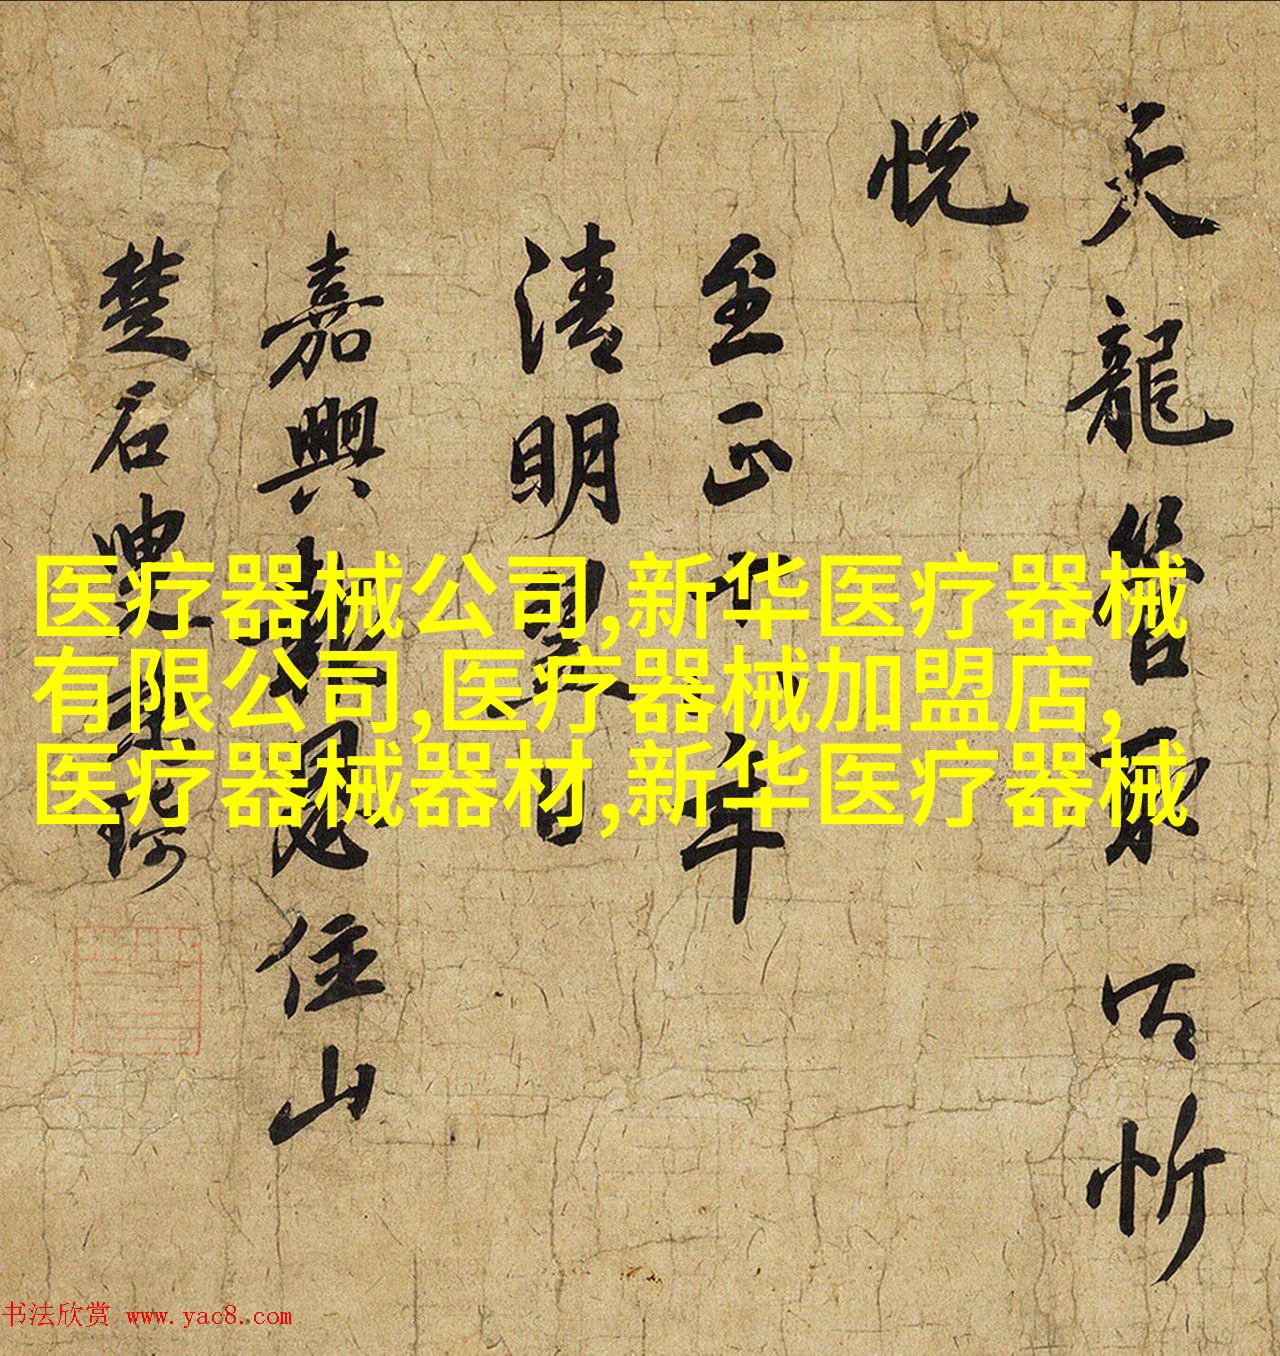 天龍管取以忻
悦
至正十八年
清明望日
嘉興報恩住山
楚石叟梵琦
医疗器械公司,新华医疗器械
有限公司,医疗器械加盟店,
医疗器械器材,新华医疗器械
书法欣赏 www.yac8.com